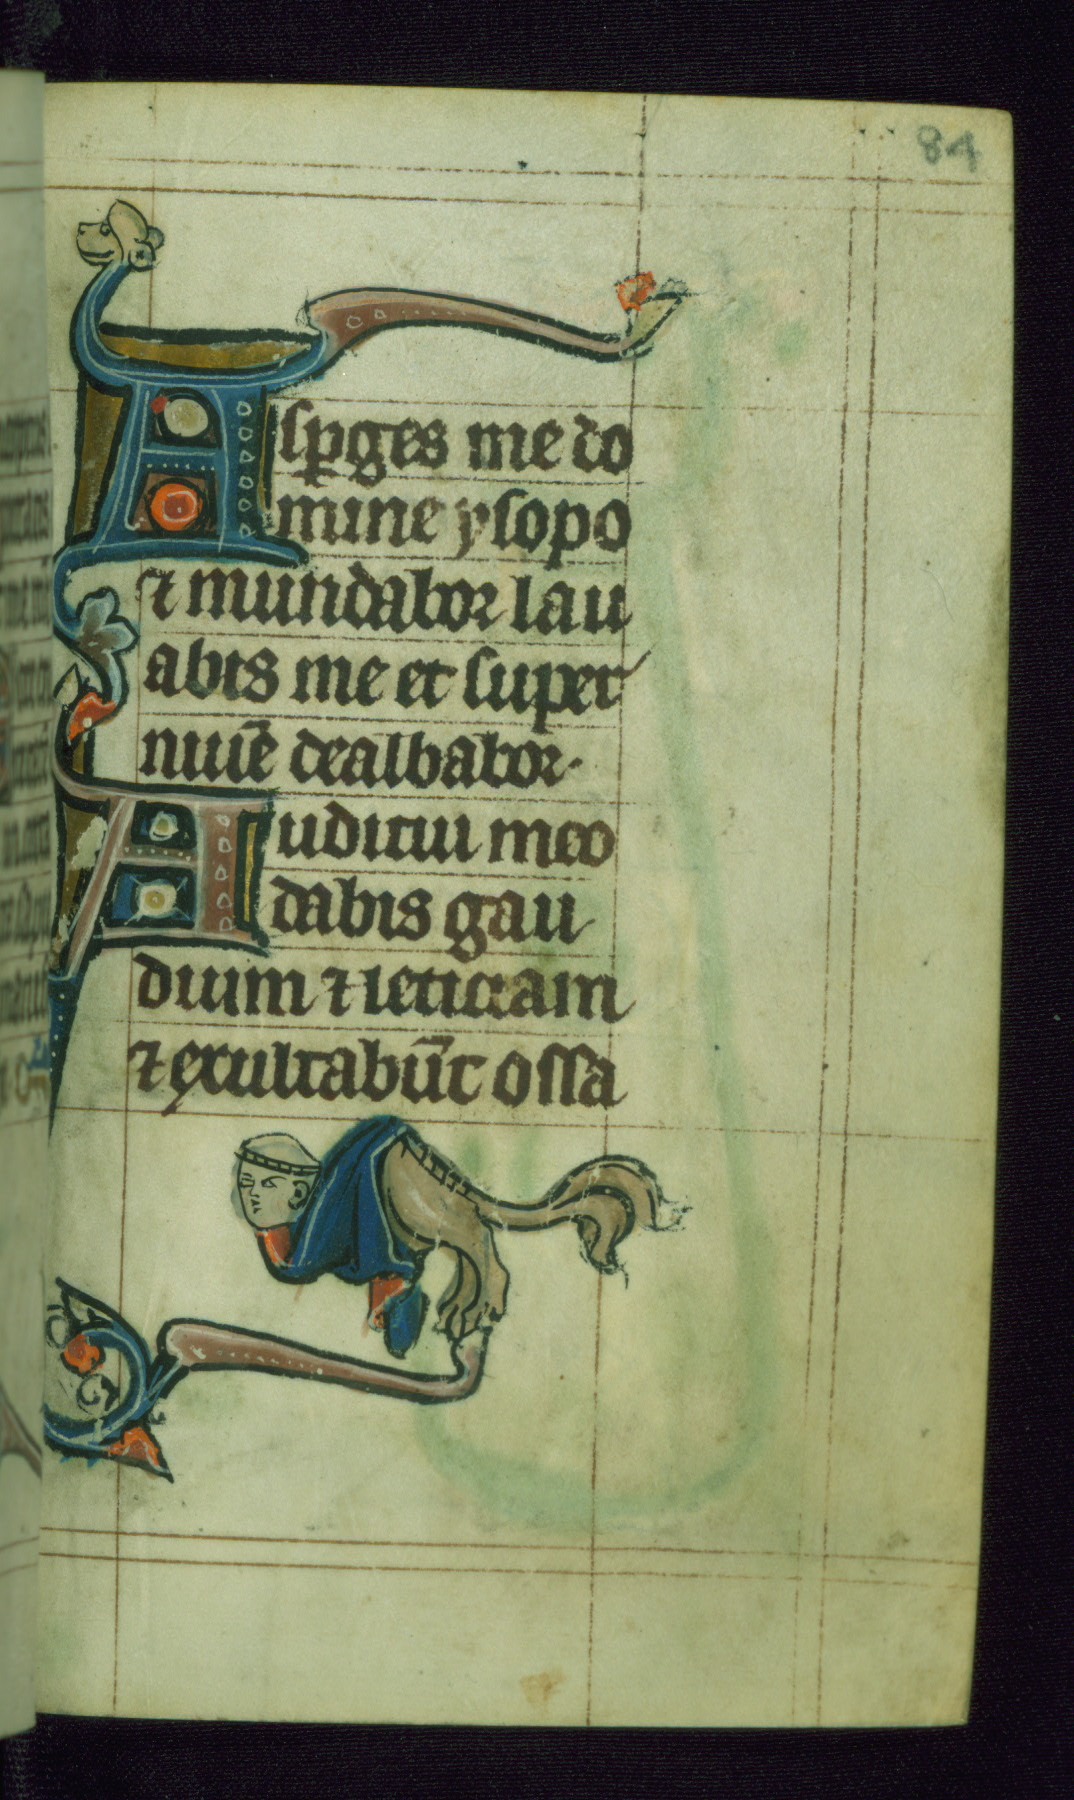 84
Asꝑges me do
mine ysopo
⁊ mundabor lau
abis me et super
niuē dealbabor·
Auditui meo
dabis gau
dium ⁊ leticiam
⁊ exultabūt ossa